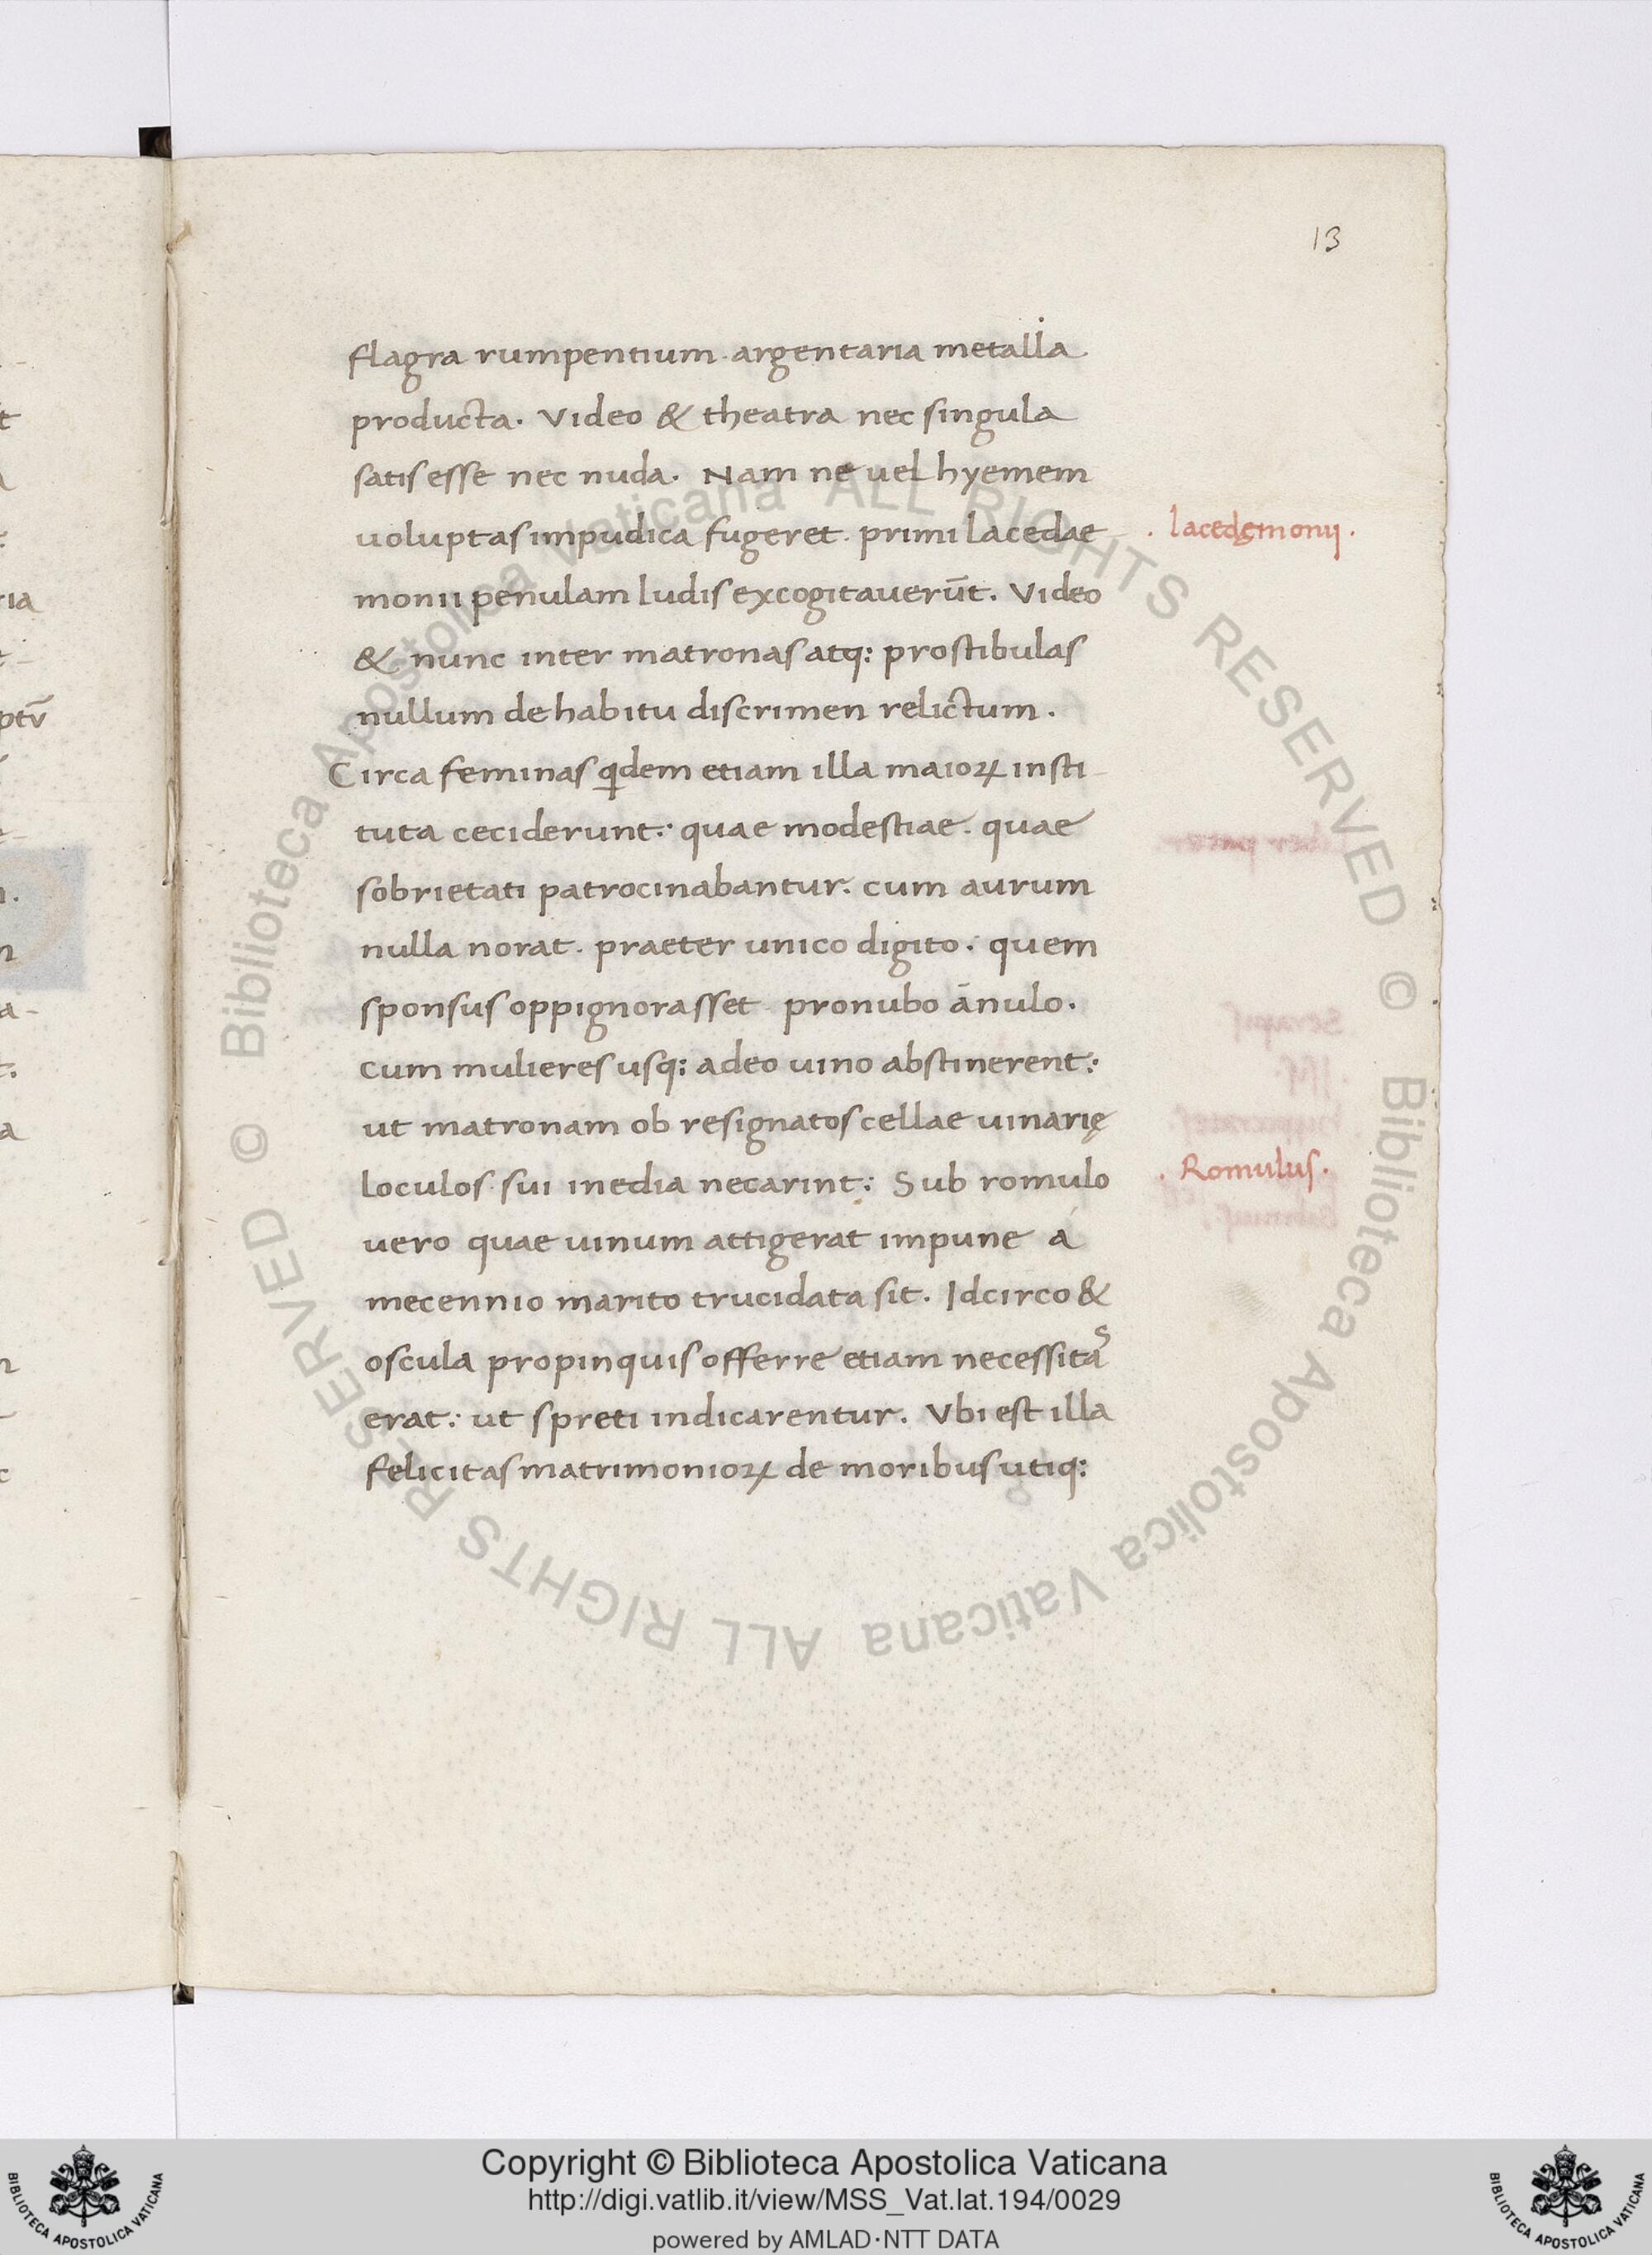 13
flagra rumpentium. argentaria metalla
producta. Video & theatra nec singula
satis esse nec nuda. Nam ne uel hyemem
uoluptas impudica fugeret. primi lacedae
. lacedęmonij .
monii penulam ludis excogitauerūt. Video
& nunc inter matronas atq: prostibulas
nullum de habitu discrimen relictum.
Circa feminas qͥdem etiam illa maioꝝ insti
tuta ceciderunt: quae modestiae. quae
sobrietati patrocinabantur. cum aurum
nulla norat. praeter unico digito. quem
sponsus oppignorasset pronubo ānulo.
cum mulieres usq: adeo uino abstinerent:
ut matronam ob resignatos cellae uinarię
loculos sui inedia necarint: Sub romulo
. Romulus.
uero quae uinum attigerat impune á
mecennio marito trucidata sit. Idcirco &
oscula propinquis offerre etiam necessitaˢ
erat: ut spreti indicarentur. Vbi est illa
felicitas matrimonioꝝ de moribus utiq:
© Biblioteca Apostolica Vaticana ALL RIGHTS RESERVED
© Biblioteca Apostolica Vaticana ALL RIGHTS RESERVED
Copyright © Biblioteca Apostolica Vaticana
http://digi.vatlib.it/view/MSS_Vat.lat.194/0029
powered by AMLAD·NTT DATA
BIBLIOTECA APOSTOLICA VATICANA
BIBLIOTECA APOSTOLICA VATICANA